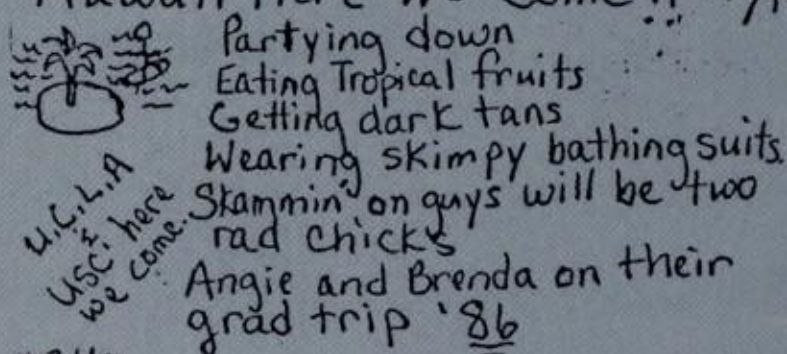 Here We Come
Partying down
Eating Tropical fruits
Getting dark tans
Wearing skimpy bathing suits
Skammin' on guys will be two
rad chicks
Angie and Brenda on their
grad trip '86
U.C.L.A
&
USC! here
we come.